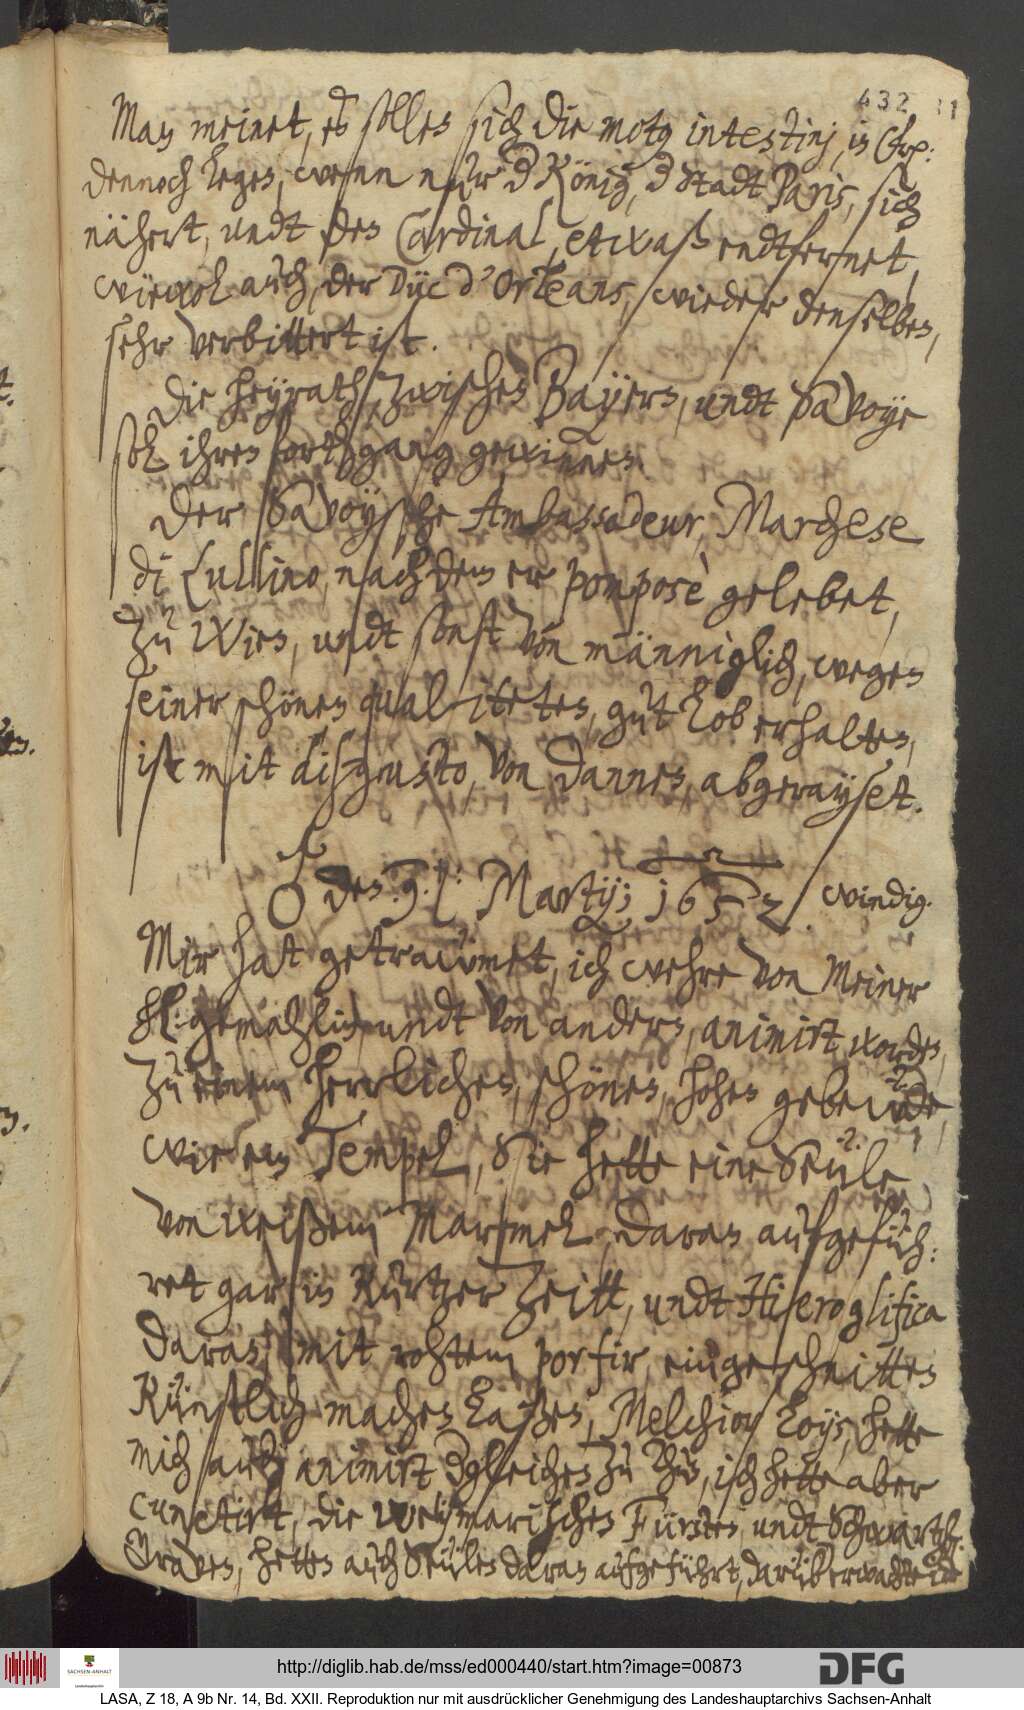 432
Man meinet, es sollen sich die motus intestinj, in
dennoch legen, wenn nur d König, d Stadt Paris, sich
nähert, undt den Cardinal, etwaß endtfernet,
wiewol auch, der Düc d'Orleans, wieder denselben,
sehr verbittert ist.
Die heyrath, zwischen Bayern, undt Savoye
sol ihren fortgang gewinnen.
Der Savoysche Ambassadeur, Marchese
di Lullino, nachdem er pomposè gelebet,
zu Wien, undt sonst von männiglich, wegen
seiner schönen qualiteten, gut lob erhalten,
ist mit disgusto, von dannen, abgerayset.
des 9. Martij; 1652. windig.
Mir hat getraümet, ich wehre von Meiner
gemahlin, undt von andern, animirt worden,
zu einem herrlichen, schönen, hohen gebeude,
wie ein Tempel, Sie hette eine Seule
von weißem Marmel, daran aufgefüh:
ret gar in kurtzer Zeitt, undt Hiseroglifica
daran, mit rohtem porfir, eingeschnitten
Künstlich machen laßen, Melchior Loys, hette
mich auch animirt dgleichen zu thun, ich hette aber
cunctirt, die Weymarischen Fürsten, undt Schwartzb:
Graven, hetten auch Seulen daran aufgeführt, darüber
http://diglib.hab.de/mss/ed000440/start.htm?image=00873
DFG
SACHSEN-ANHALT
LASA, Z 18, A 9b Nr. 14, Bd. XXII. Reproduktion nur mit ausdrücklicher Genehmigung des Landeshauptarchivs Sachsen-Anhalt